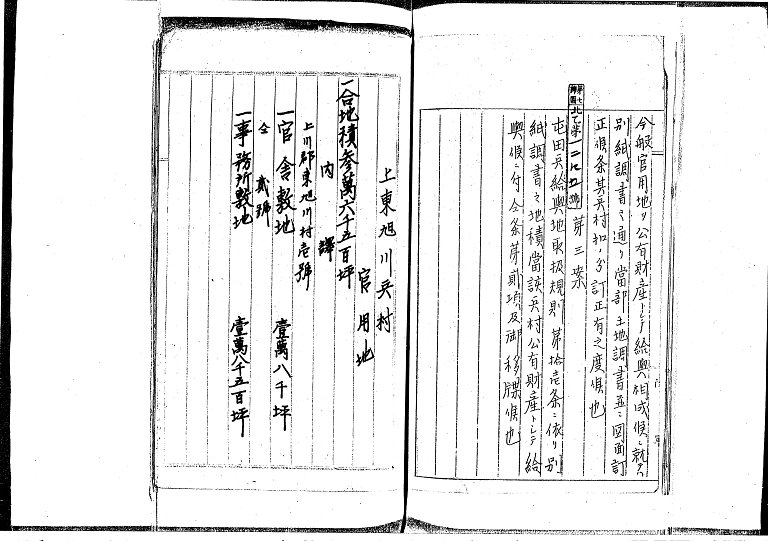 今般官用地ヲ公有財産トシテ給與相成候ニ就テハ
別紙調書之通リ當部土地調書並ニ図面訂
正候条其兵村扣ヘ分訂正有之度候也
北乙第一二七五號 第三案
屯田兵給與地取扱規則第拾壱条ニ依リ別
紙調書之地積當該兵村公有財産トシテ給
與候ニ付仝条第貳項及御移牒候也
上東旭川兵村
官用地
一合地積参萬六千五百坪
内譯
上川郡東旭川村壱號
一官舎敷地 壹萬八千坪
仝 貳號
一事務所敷地 壹萬八千五百坪